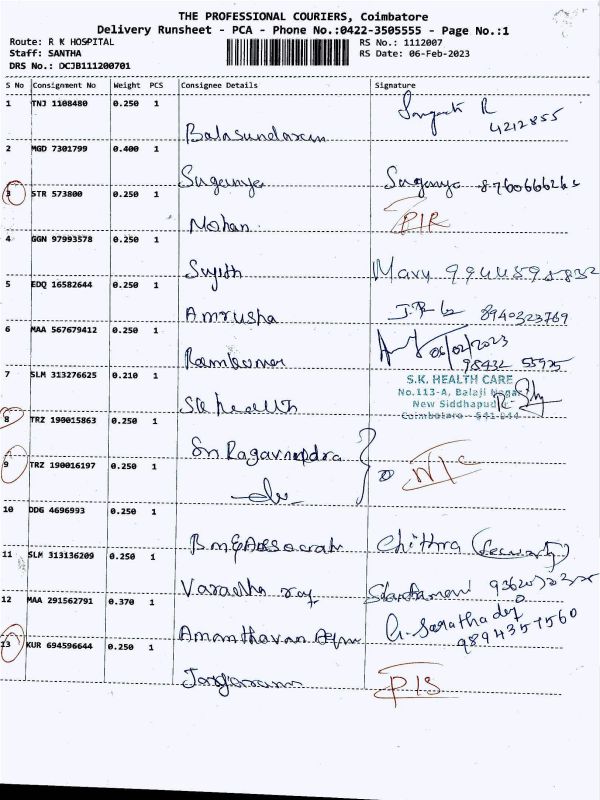 THE PROFESSIONAL COURIERS, Coimbatore
Delivery Runsheet - PCA - Phone No.:0422-3505555 - Page No.:1
Route: R K HOSPITAL RS No.: 1112007
Staff: SANTHA RS Date: 06-Feb-2023
DRS No.: DCJB111200701
S No Consignment No Weight PCS Consignee Details Signature
1 TNJ 1108480 0.250 1
R
4212855
Balasundaram
2 MGD 7301799 0.400 1
Suganya Suganya
3 STR 573800 0.250 1
Mohan
4 GGN 97993578 0.250 1
Sujith Mary
5 EDQ 16582644 0.250 1
Amrusha 8940323769
6 MAA 567679412 0.250 1
06/02/2023
Ramkumar
7 SLM 313276625 0.210 1
S.K. HEALTH CARE
No.113-A, Balaji Nagar
New Siddhapudur
Coimbatore - 641 044
Sk health
8 TRZ 190015863 0.250 1
Sri Ragavendra
9 TRZ 190016197 0.250 1
do
10 DDG 4696993 0.250 1
Chithra (Security)
11 SLM 313136209 0.250 1
Varadha raj
12 MAA 291562791 0.370 1
13 KUR 694596644 0.250 1